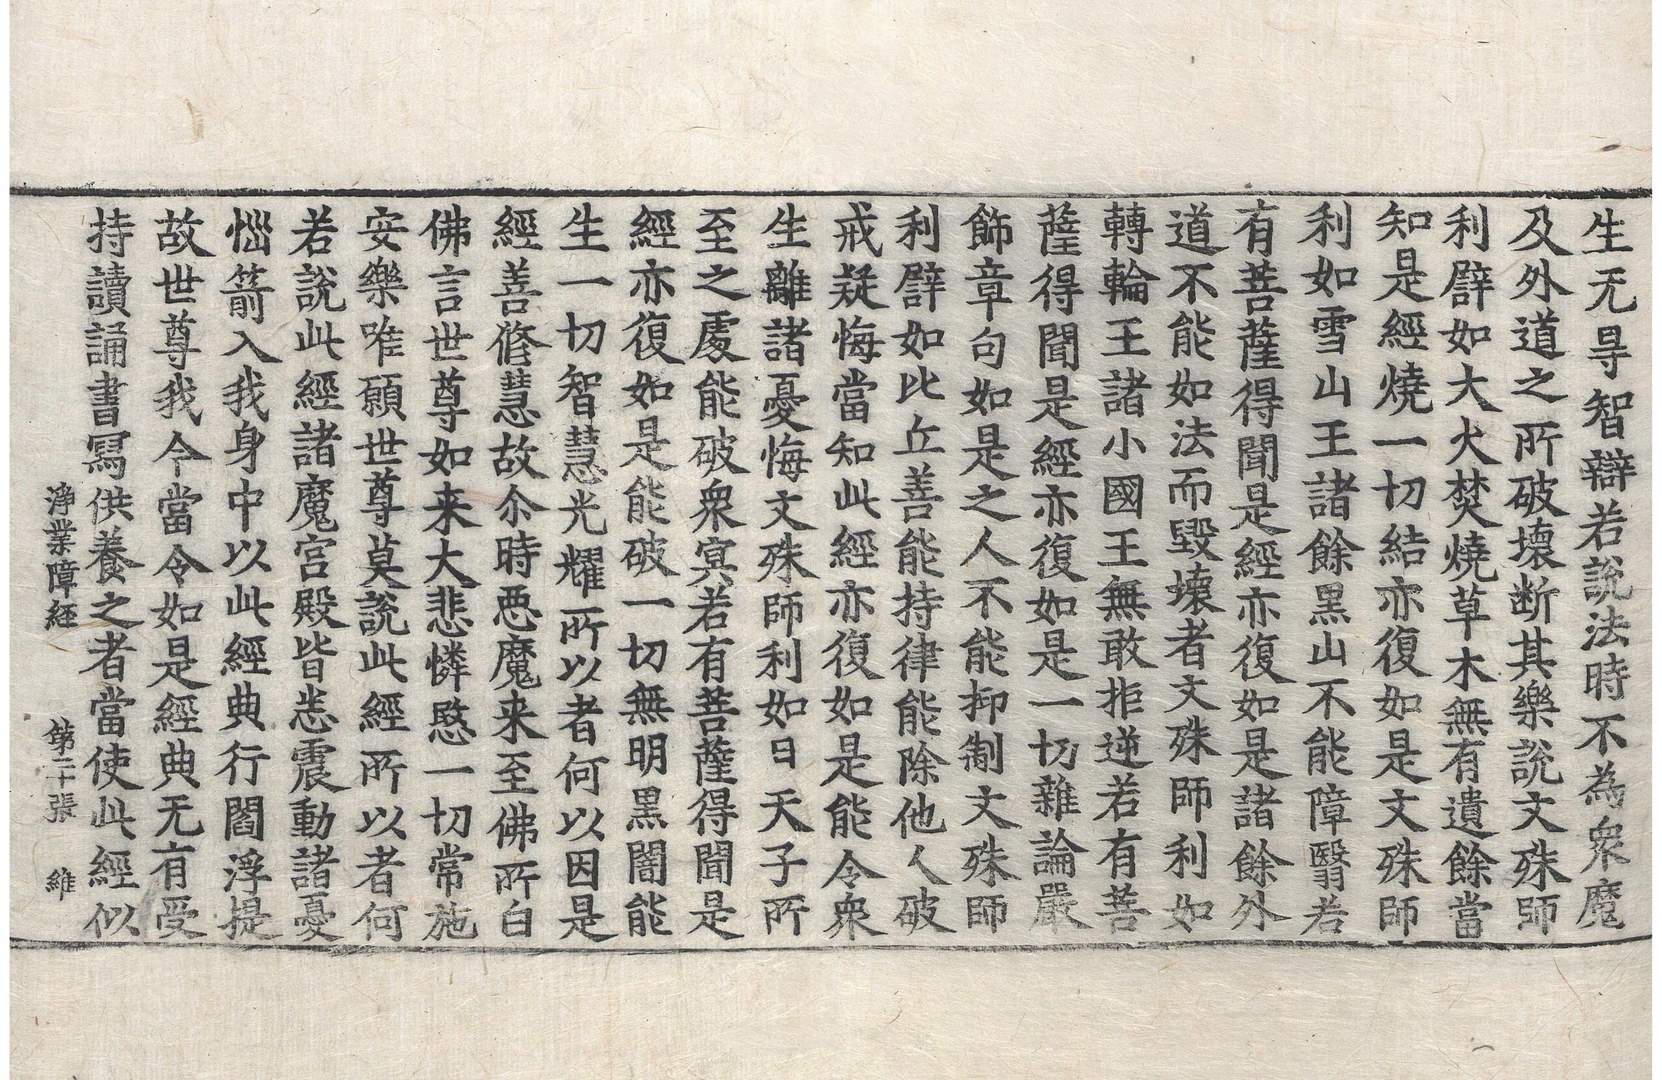 生无㝵智辯若說法時不為衆魔
及外道之所破壞断其樂說文殊師
利譬如大火焚燒草木無有遺餘當
知是經燒一切結亦復如是文殊師
利如雪山王諸餘黑山不能障翳若
有菩薩得聞是經亦復如是諸餘外
道不能如法而毀壞者文殊師利如
轉輪王諸小國王無敢拒逆若有菩
薩得聞是經亦復如是一切雜論嚴
飾章句如是之人不能抑制文殊師
利譬如比丘善能持律能除他人破
戒疑悔當知此經亦復如是能令衆
生離諸憂悔文殊師利如日天子所
至之處能破衆冥若有菩薩得聞是
經亦復如是能破一切無明黑闇能
生一切智慧光耀所以者何以因是
經善脩慧故尒時惡魔来至佛所白
佛言世尊如来大悲憐愍一切常施
安樂唯願世尊莫說此經所以者何
若說此經諸魔宮殿皆悉震動諸憂
惱箭入我身中以此經典行閻浮提
故世尊我今當令如是經典无有受
持讀誦書寫供養之者當使此經似
淨業障經 第二十張 維